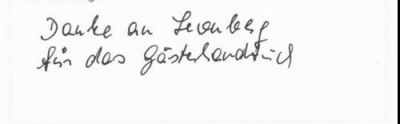 Danke an Leonberg
für das Gästehandtuch